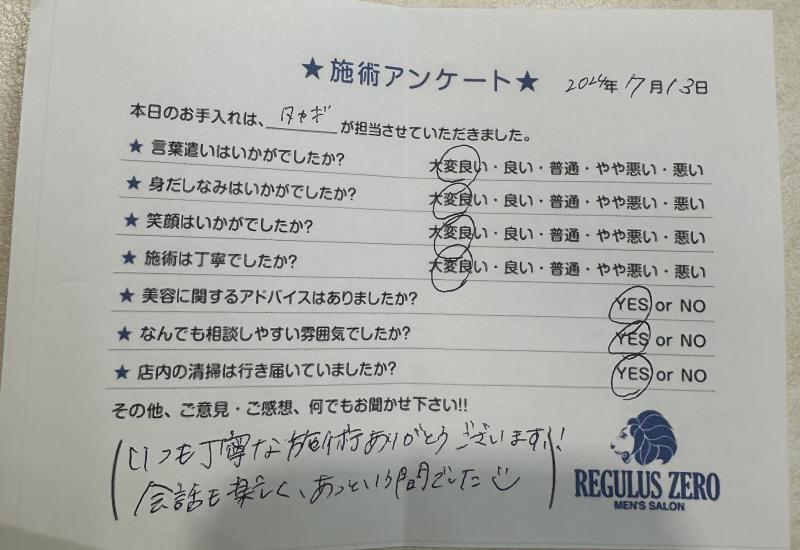 ★施術アンケート★ 2024年 7月13日
本日のお手入れは、タヤギが担当させていただきました。
★ 言葉遣いはいかがでしたか? 大変良い・良い・普通・やや悪い・悪い
★ 身だしなみはいかがでしたか? 大変良い・良い・普通・やや悪い・悪い
★ 笑顔はいかがでしたか? 大変良い・良い・普通・やや悪い・悪い
★ 施術は丁寧でしたか? 大変良い・良い・普通・やや悪い・悪い
★ 美容に関するアドバイスはありましたか? YES or NO
★ なんでも相談しやすい雰囲気でしたか? YES or NO
★ 店内の清掃は行き届いていましたか? YES or NO
その他、ご意見・ご感想、何でもお聞かせ下さい!!
いつも丁寧な施術ありがとうございます!!
会話も楽しく、あっという間でした
REGULUS ZERO
MEN'S SALON